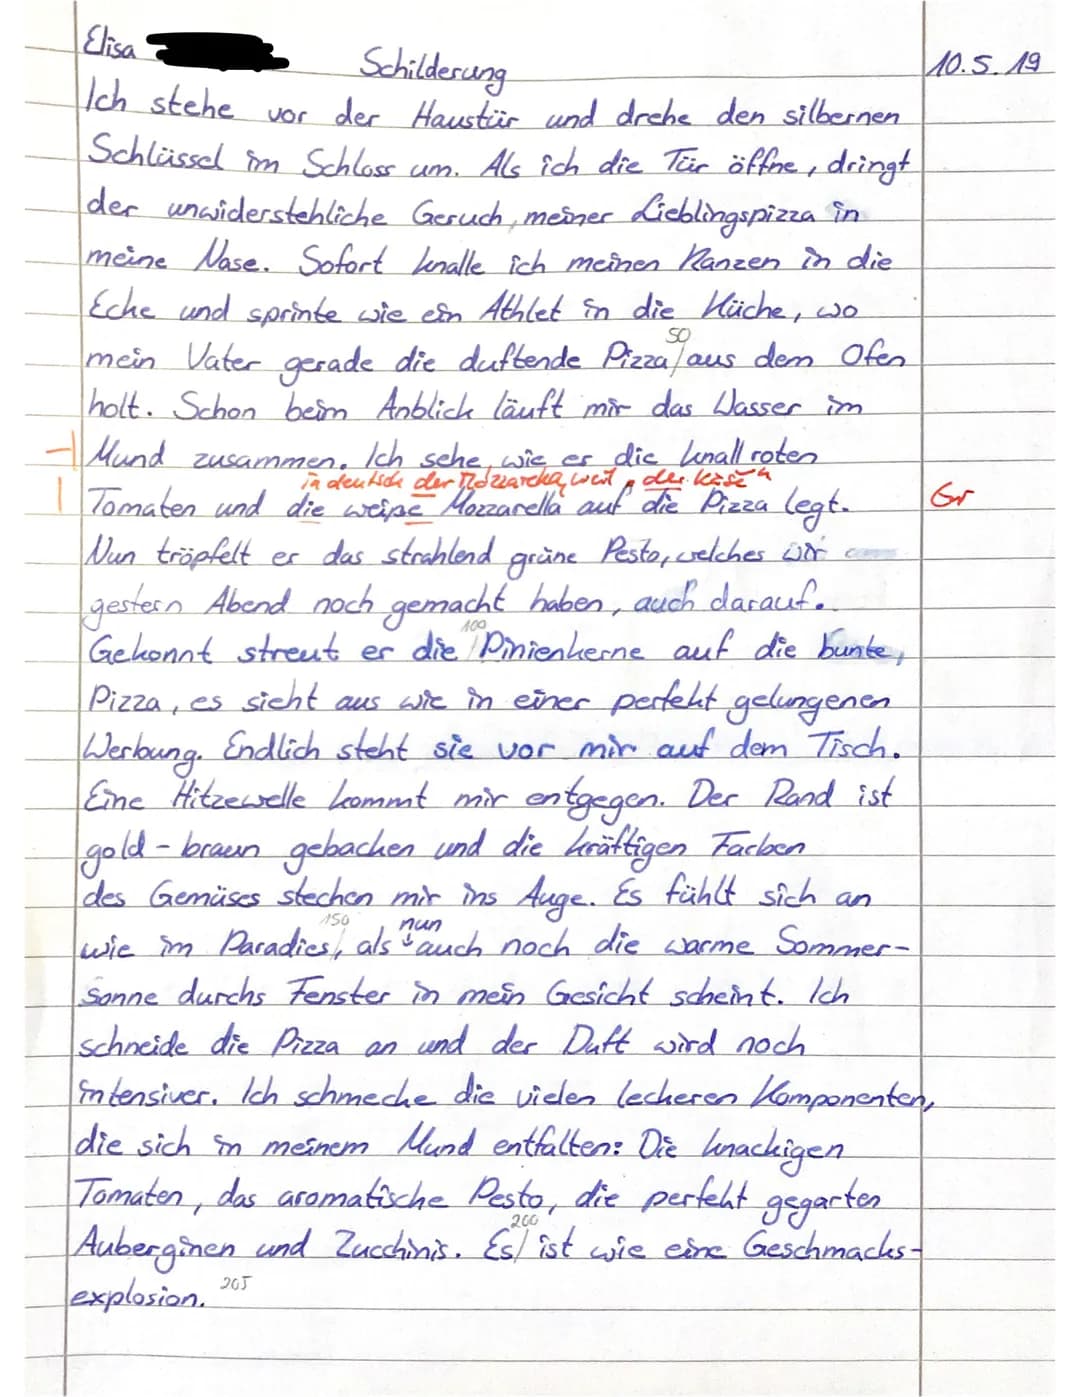 Elisa
Schilderung
10.5.19
Ich stehe vor der Haustür und drehe den silbernen
Schlüssel im Schloss um. Als ich die Tür öffne, dringt
der unwiderstehliche Geruch, meiner Lieblingspizza in
meine Nase. Sofort knalle ich meinen Ranzen in die
Ecke und sprinte wie ein Athlet in die Küche, wo
50
mein Vater gerade die duftende Pizza/aus dem Ofen
holt. Schon beim Anblick läuft mir das Wasser im
Mund zusammen. Ich sehe, wie er die knall roten
in deutsch der Mozzarella, weil der Käse
Tomaten und die weiße Mozzarella auf die Pizza legt.
Gr
Nun tröpfelt er das strahlend grüne Pesto, welches wir
gestern Abend noch gemacht haben, auch darauf.
100
Gekonnt streut er die /Pinienkerne auf die bunte,
Pizza, es sieht aus wie in einer perfekt gelungenen
Werbung. Endlich steht sie vor mir auf dem Tisch.
Eine Hitzewelle kommt mir entgegen. Der Rand ist
gold-braun gebacken und die kräftigen Farben
des Gemüses stechen mir ins Auge. Es fühlt sich an
150 nun
wie im Paradies/, als auch noch die warme Sommer-
sonne durchs Fenster in mein Gesicht scheint. Ich
schneide die Pizza an und der Duft wird noch
intensiver. Ich schmecke die vielen leckeren Komponenten,
die sich in meinem Mund entfalten: Die knackigen
Tomaten, das aromatische Pesto, die perfekt gegarten
200
Auberginen und Zucchinis. Es/ ist wie eine Geschmacks-
explosion. 205